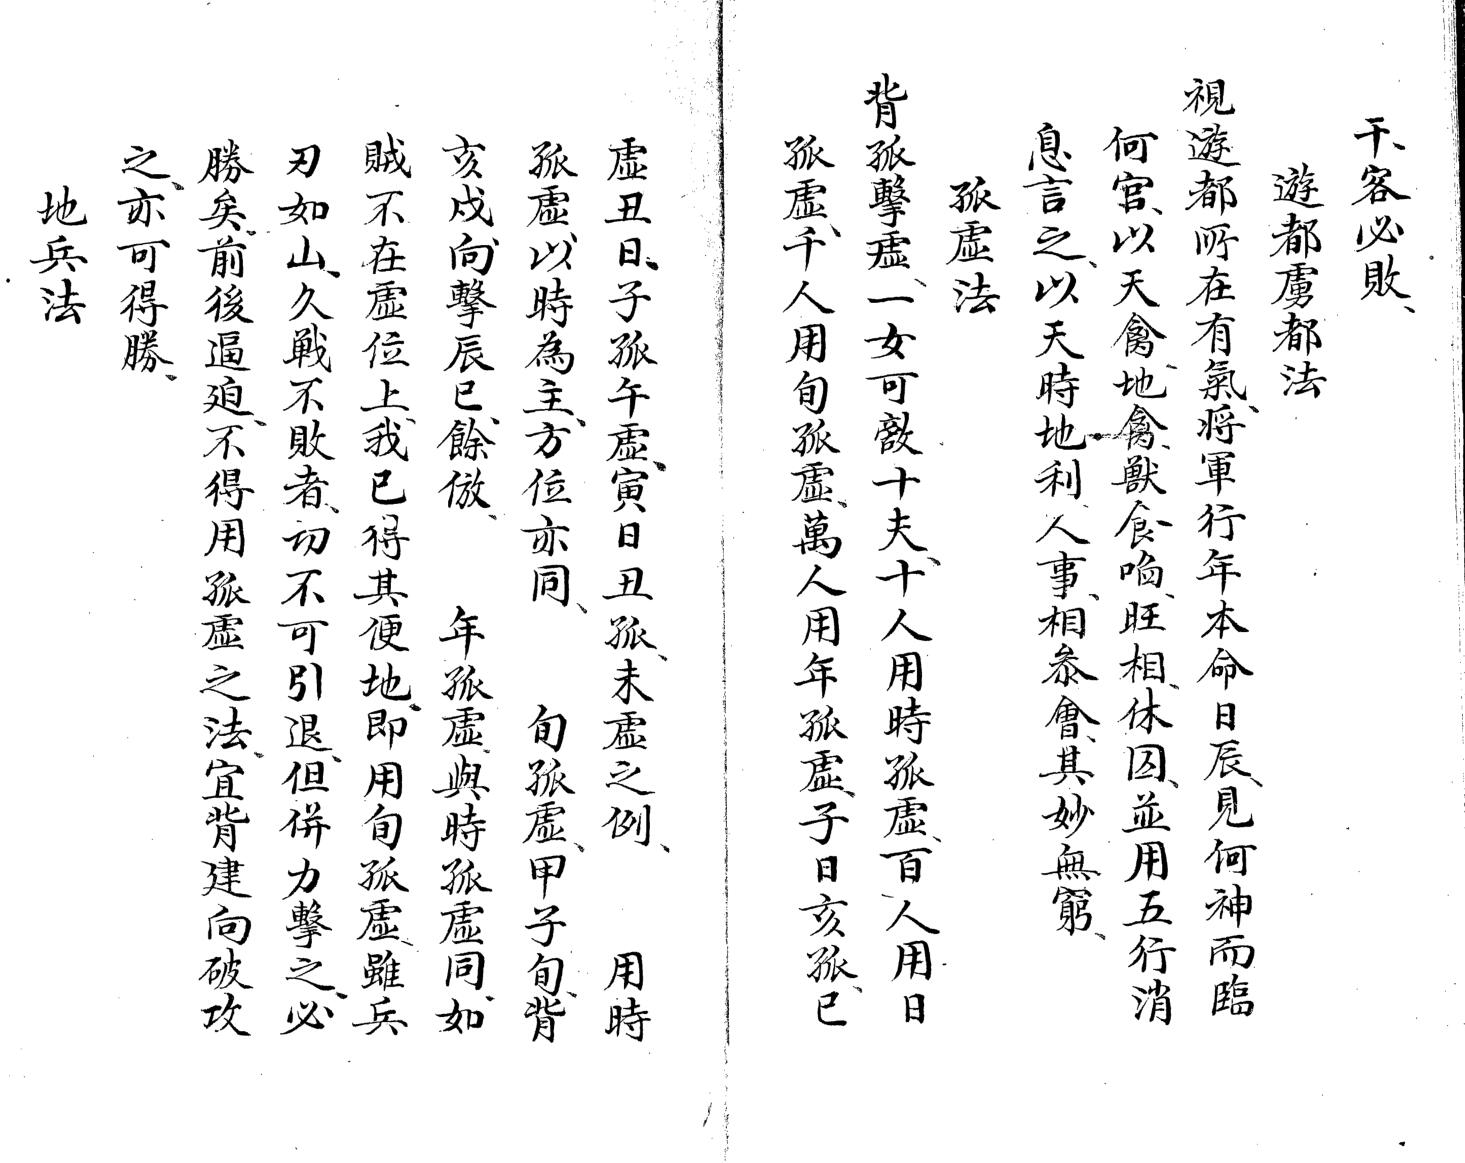 干、客必敗、
遊都虜都法
視遊都所在有氣、將軍行年本命日辰、見何神而臨
何宮、以天禽、地禽、獸食啗、旺相、休囚、並用五行消
息言之、以天時地利、人事、相參會、其妙無窮、
孤虛法
背孤擊虛、一女可敵十夫、十人用時孤虛、百人用日
孤虛、千人用旬孤虛、萬人用年孤虛、子日亥孤、巳
虛丑日、子孤午虛、寅日丑孤、未虛之例、　用時
孤虛、以時為主、方位亦同、　旬孤虛、甲子旬、背
亥戌、向擊辰巳、餘倣、　年孤虛、與時孤虛同、如
賊不在虛位上、我已得其便地、即用旬孤虛、雖兵
刃如山、久戰不敗者、切不可引退、但併力擊之、必
勝矣、前後逼迫、不得用孤虛之法、宜背建向破攻
之、亦可得勝、
地兵法